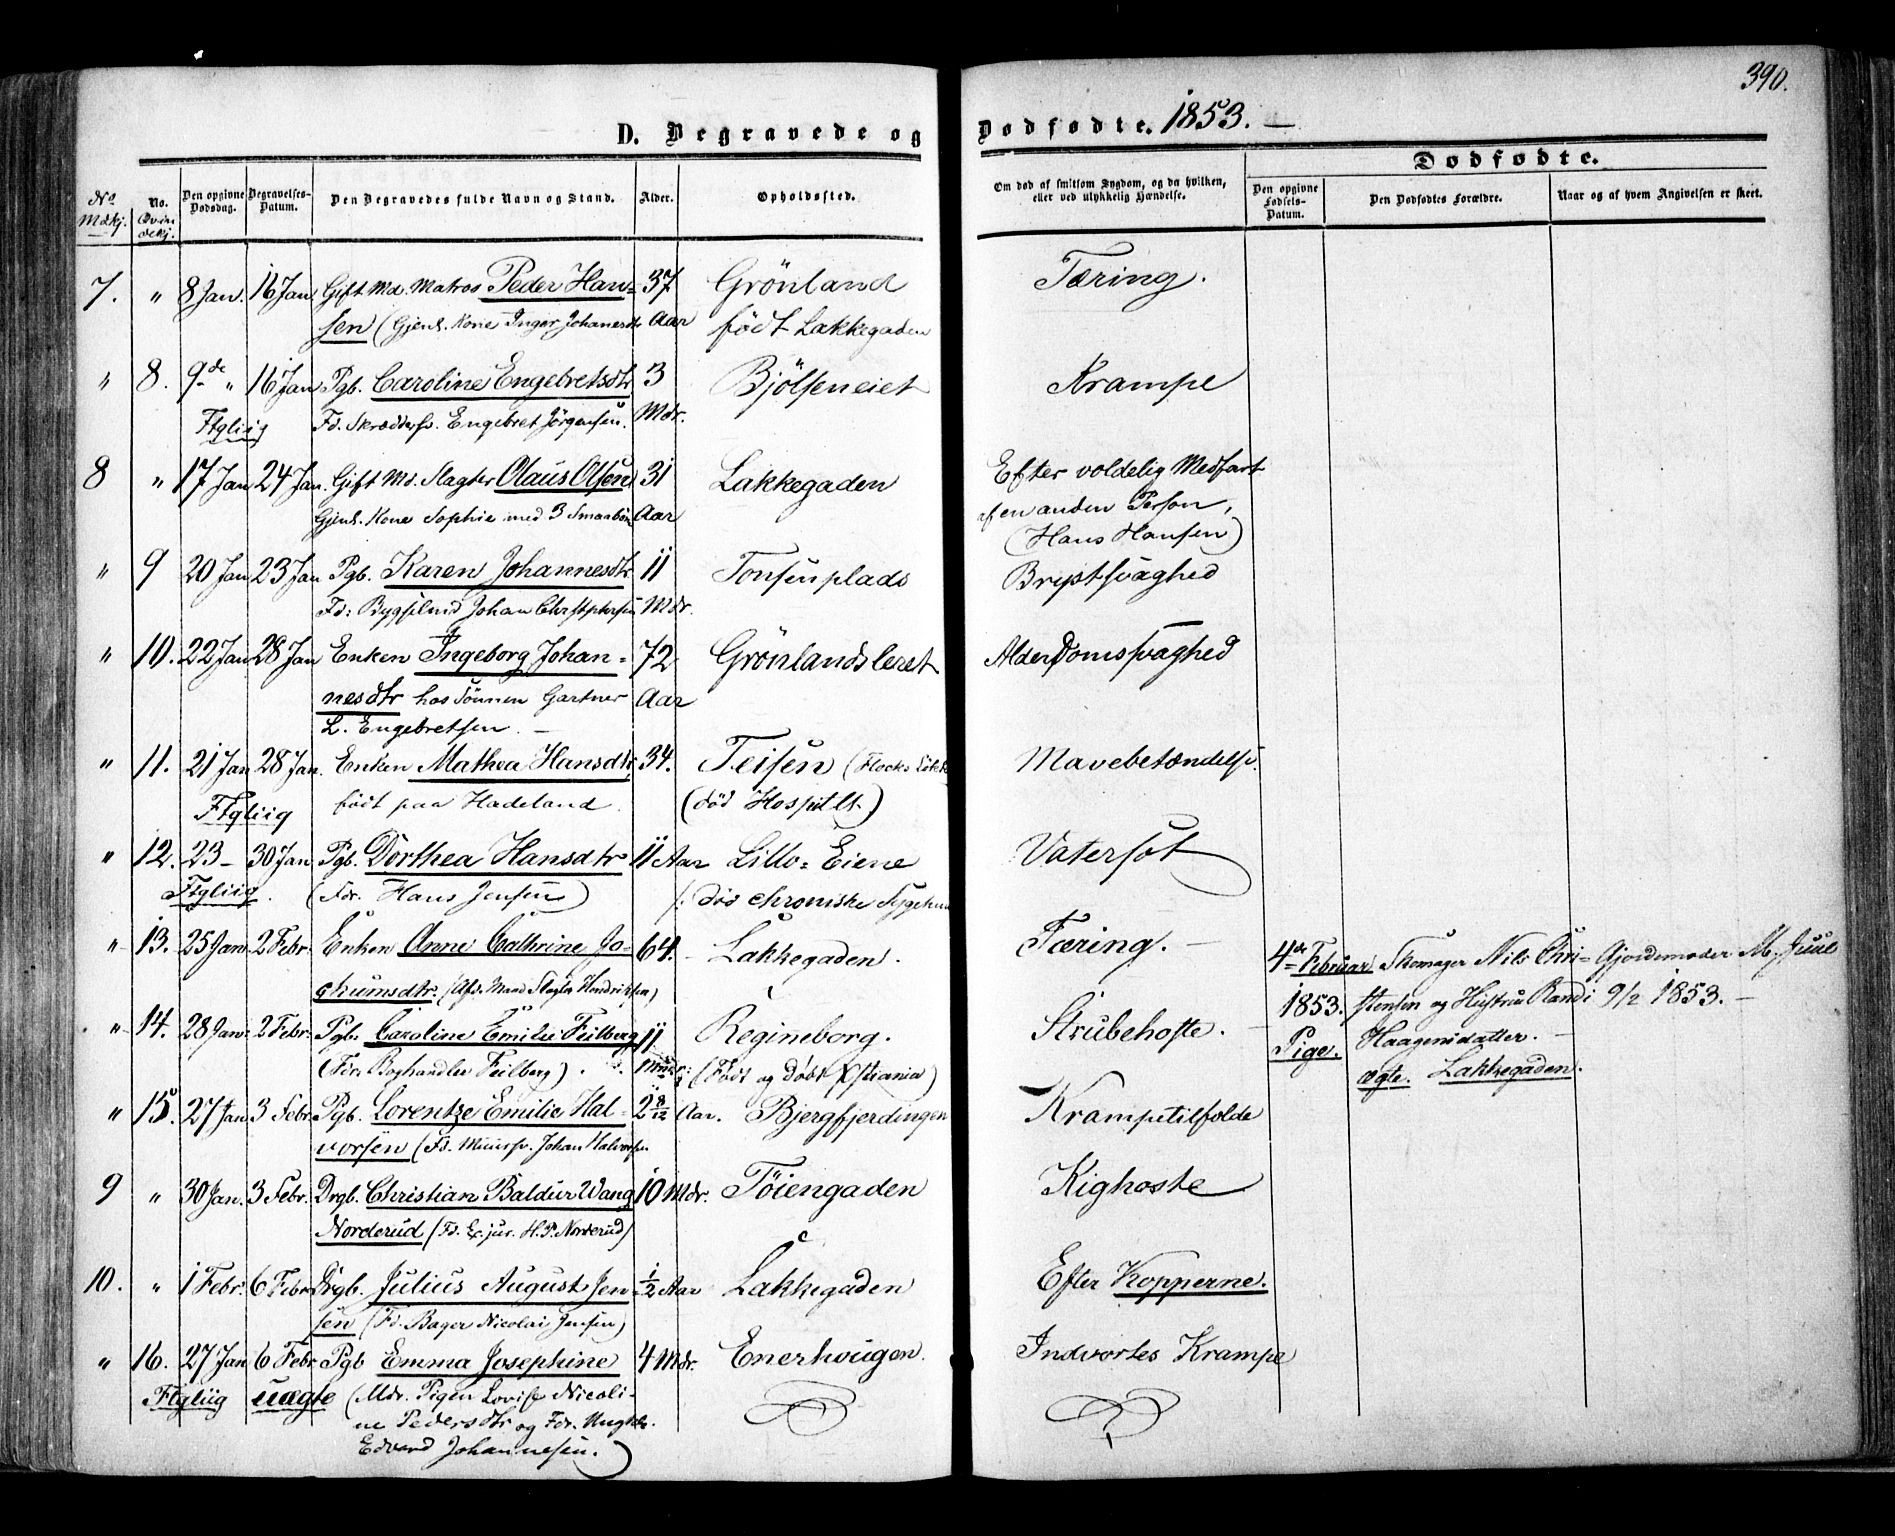 390.
D. Begravede og Dødfødte. 1853. —
Dødfødte.
No Mdkj.
No. Qvindekj.
Den opgivne Dødsdag.
Begravelses-Datum.
Den Begravedes fulde Navn og Stand.
Alder.
Opholdssted.
Om død af smitsom Sygdom, og da hvilken, eller ved ulykkelig Hændelse.
Den opgivne Fødsels-Datum.
Den Dødfødtes Forældre.
Naar og af hvem Angivelsen er skeet.
7. " 8 Jan. 16 Jan. Gift Md. Matros Peder Han= 37 Grönland Tæring.
sen (Gjenl. Kone Inger Johanesdtr Aar født Lakkegaden
" 8. 9de " 16 Jan Pgb. Caroline Engebretsdtr 3 Bjölseneiet Krampe
Ftgliig Fd. Skrædersv. Engebret Jörgensen. Mdr.
8 " 17 Jan 24 Jan. Gift Md. Slagter Olaus Olsen 31 Lakkegaden Efter voldelig Medfart
Gjenl. Kone Sophie med 3 Smaabörn Aar af en anden Person,
(Hans Hansen)
" 9 20 Jan 23 Jan Pgb. Karen Johannesdtr 11 Tonsenplads Brystsvaghed
Fd: Bygselmd Johan Christphersen Mdr.
" 10. 22 Jan 28 Jan Enken Ingeborg Johan= 72 Grönlandsleret Alderdomssvaghed
nesdtr hos Sönnen Gartner Aar
L. Engebretsen. —
" 11. 21 Jan 28 Jan. Enken Mathea Hansdtr 34. Teisen (Flocks Lökk Mavebetændelse.
Ftgliig født paa Hadeland. (död Hospitlt.)
" 12. 23 — 30 Jan. Pgb. Dorthea Hansdtr 11 Aar Lillo=Eiene Vatersot
Ftgliig. (Fdr. Hans Jensen) (: död chroniske Sygehuus
" 13. 25 Jan. 2 Febr. Enken Anne Cathrine Jo- 64. Lakkegaden. Tæring. —
chumsdtr. (Afd. Mand Slagter Hendriksen)
4de Februar Skomager Nils Chri= Gjordemoder M. Juul
1853. stensen og Hustru Randi 9/2 1853. —
Pige. Haagensdatter. —
ægte. Lakkegaden.
" 14. 28 Jan. 2 Febr. Pgb. Caroline Emilie Feilberg 11 Regineborg. Strubehoste.
(Fdr. Boghandler Feilberg) (Födt og Döbt Xstiania)
" 15. 27 Jan 3 Febr. Pgb. Lorentze Emilie Hal- 2 8/12 Aar. Bjergfjerdingen Krampetilfælde
vorsen (Fd. Muursv. Johan Halvorsen
9 " 30 Jan. 3 Febr. Drgb. Christian Baldur Wang 10 Mdr. Töiengaden Kighoste
Norderud (Fd. Ex.jur. H.P. Norderud)
10. " 1 Febr. 6 Febr. Drgb. Julius August Jen= 1/2 Aar Lakkegaden Efter Kopperne.
sen (Fd. Bager Nicolai Jensen)
" 16. 27 Jan 6 Febr. Pgb Emma Josephine 4 Mdr. Enerhougen. Indvortes Krampe
Ftgliig uægte (Mdr. Pigen Lovise Nicoli-
ne Pedersdtr og Fdr. Ungkr.
Edvard Johannesen.)